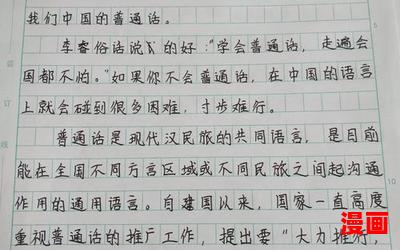 我们中国的普通话。
俗话说的好："学会普通话，走遍会
国都不怕。"如果你不会普通话，在中国的语言
上就会碰到很多困难，寸步难行。
普通话是现代汉民族的共同语言，是目前
能在全国不同方言区域或不同民族之间起沟通
作用的通用语言。自建国以来，国家一直高度
重视普通话的推广工作，提出要"大力推行
订
线
5
10
漫画